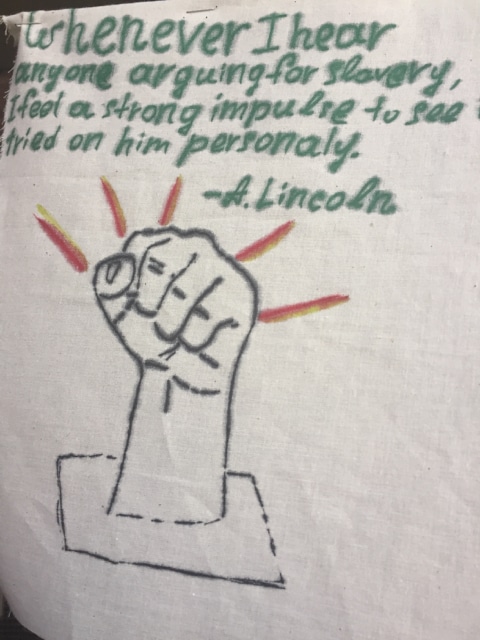 Whenever I hear
anyone arguing for slavery,
I feel a strong impulse to see
tried on him personaly.
-A. Lincoln